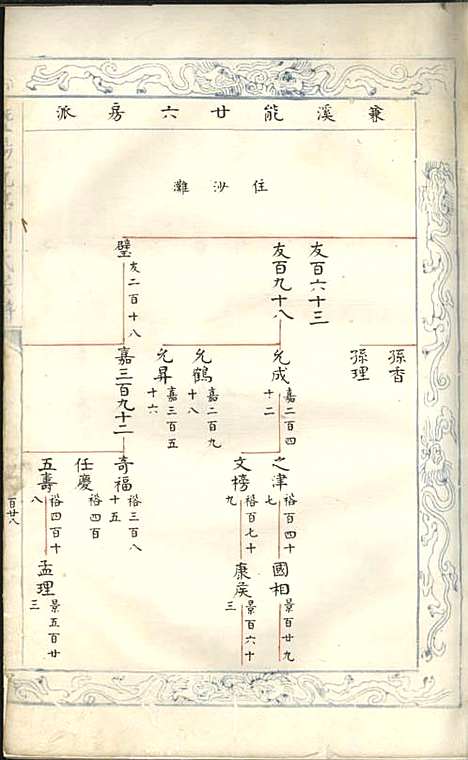 兼溪能廿六房派
住沙灘
孫香
孫理
友百六十三
友百九十八
允成 嘉二百四十二
之津 裕百四十七
國相 景百廿九
文榜 裕百七十九
康侯 景百六十三
允鶴 嘉二百九十八
允昇 嘉三百五十六
璧 友二百十八
嘉三百九十二
奇福 裕三百八十五
任慶 裕四百
五壽 裕四百十八
孟理 景五百廿三
百廿八